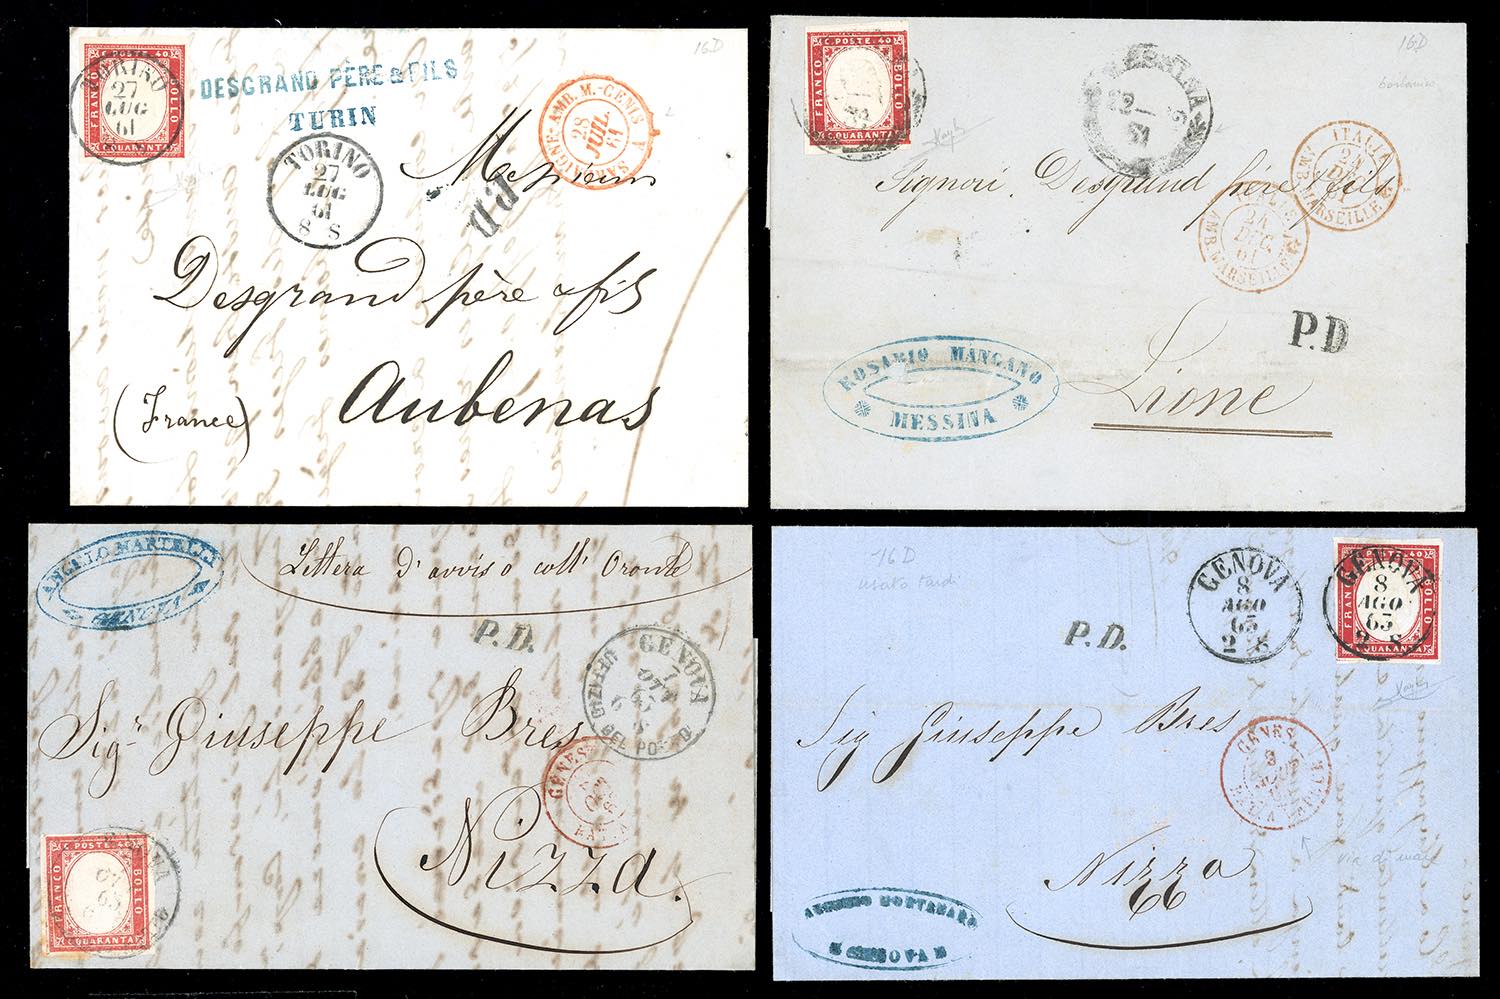 C. POSTE. 40
FRANCO
BOLLO
C. QUARANTA
TORINO
27
LUG
61
DESGRAND PÈRE & FILS
TURIN
16D
TORINO
27
LUG
61
8 S
SARDAIGNE. AMB. M.-CENIS A
28
JUIL.
61
P.D.
Messieurs
Desgrand père & fils
Aubenas
(France)
FRANCO
BOLLO
C. QUARANTA
MESSINA
16D
ITALIE
24
DEC.
61
AMB. MARSEILLE
ITALIE
24
DEC.
61
AMB. MARSEILLE
Signori Desgrand père & fils
P.D
Lione
ROSARIO MANGANO
MESSINA
ANGELO MARTELLI
GENOVA
Lettera d'avviso coll' Oronte
P.D.
GENOVA
7
UFFIZIO
DEL PORTO
Sigr Giuseppe Bres
GÊNES
Nizza
C. POSTE. 40
FRANCO
BOLLO
C. QUARANTA
63
16 D
usato tardi
P.D.
GENOVA
8
AGO
63
2 S
C. POSTE. 40
FRANCO
BOLLO
C. QUARANTA
GENOVA
8
AGO
63
2 S
Sig Giuseppe Bres
GÊNES
Nizza
via di mare
GENOVA